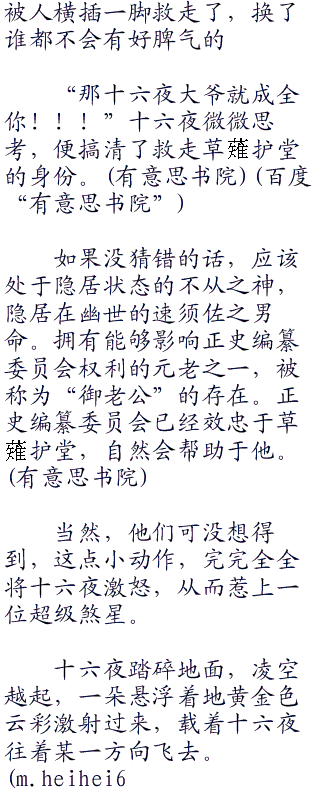 被人横插一脚救走了，换了
谁都不会有好脾气的
“那十六夜大爷就成全
你！！！”十六夜微微思
考，便搞清了救走草薙护堂
的身份。(有意思书院)(百度
“有意思书院”)
如果没猜错的话，应该
处于隐居状态的不从之神，
隐居在幽世的速须佐之男
命。拥有能够影响正史编纂
委员会权利的元老之一，被
称为“御老公”的存在。正
史编纂委员会已经效忠于草
薙护堂，自然会帮助于他。
(有意思书院)
当然，他们可没想得
到，这点小动作，完完全全
将十六夜激怒，从而惹上一
位超级煞星。
十六夜踏碎地面，凌空
越起，一朵悬浮着地黄金色
云彩激射过来，载着十六夜
往着某一方向飞去。
(m.heihei6